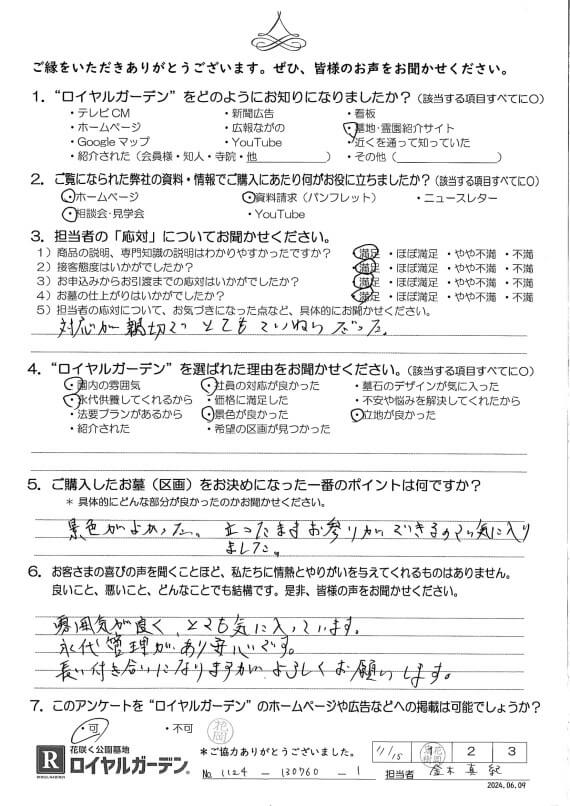 ご縁をいただきありがとうございます。ぜひ、皆様のお声をお聞かせください。
1. “ロイヤルガーデン”をどのようにお知りになりましたか？(該当する項目すべてに○)
・テレビCM ・新聞広告 ・看板
・ホームページ ・広報ながの ・墓地・霊園紹介サイト
・Googleマップ ・YouTube ・近くを通って知っていた
・紹介された（会員様・知人・寺院・他 ） ・その他（ ）
2. ご覧になられた弊社の資料・情報でご購入にあたり何がお役に立ちましたか？(該当する項目すべてに○)
・ホームページ ・資料請求（パンフレット） ・ニュースレター
・相談会・見学会 ・YouTube
3. 担当者の「応対」についてお聞かせください。
1）商品の説明、専門知識の説明はわかりやすかったですか？ ・満足 ・ほぼ満足 ・やや不満 ・不満
2）接客態度はいかがでしたか？ ・満足 ・ほぼ満足 ・やや不満 ・不満
3）お申込みからお引渡までの応対はいかがでしたか？ ・満足 ・ほぼ満足 ・やや不満 ・不満
4）お墓の仕上がりはいかがでしたか？ ・満足 ・ほぼ満足 ・やや不満 ・不満
5）担当者の応対について、お気づきになった点など、具体的にお聞かせください。
対応が親切で とてもていねいだった。
4. “ロイヤルガーデン”を選ばれた理由をお聞かせください。(該当する項目すべてに○)
・園内の雰囲気 ・社員の対応が良かった ・墓石のデザインが気に入った
・永代供養してくれるから ・価格に満足した ・不安や悩みを解決してくれたから
・法要プランがあるから ・景色が良かった ・立地が良かった
・紹介された ・希望の区画が見つかった
5. ご購入したお墓（区画）をお決めになった一番のポイントは何ですか？
＊具体的にどんな部分が良かったのかお聞かせください。
景色がよかった。立ったままお参りができるので気に入り
ました。
6. お客さまの喜びの声を聞くことほど、私たちに情熱とやりがいを与えてくれるものはありません。
良いこと、悪いこと、どんなことでも結構です。是非、皆様の声をお聞かせください。
雰囲気が良く、とても気に入っています。
永代管理があり安心です。
長い付き合いになりますが よろしくお願いします。
7. このアンケートを“ロイヤルガーデン”のホームページや広告などへの掲載は可能でしょうか？
・可 ・不可 花岡
R 花咲く公園墓地
ロイヤルガーデン®
ROYAL GARDEN
＊ご協力ありがとうございました。
11/15 2 3
No 1124 - 130760 - 1 担当者 金木 真紀
2024.06.09